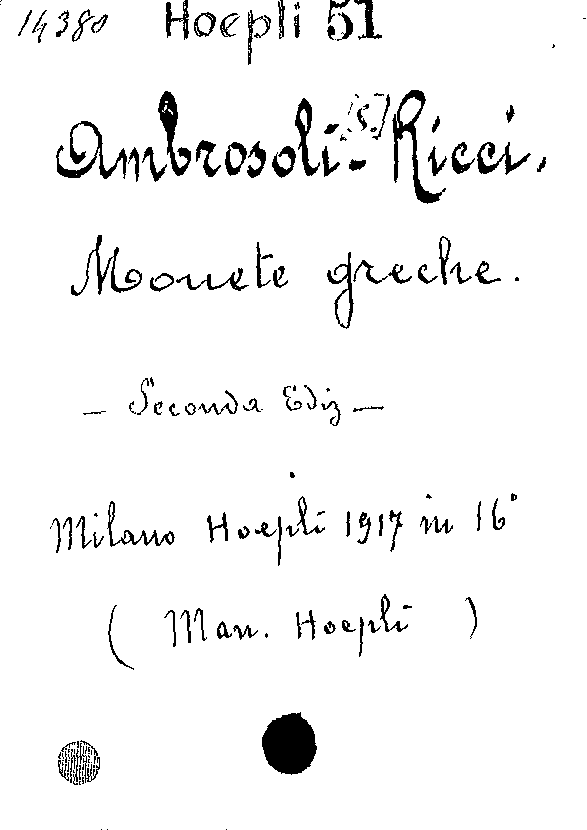 14380 Hoepli 51
Ambrosoli-[S.] Ricci.
Monete greche.
— Seconda Ediz —
Milano Hoepli 1917 in 16°
( Man. Hoepli )